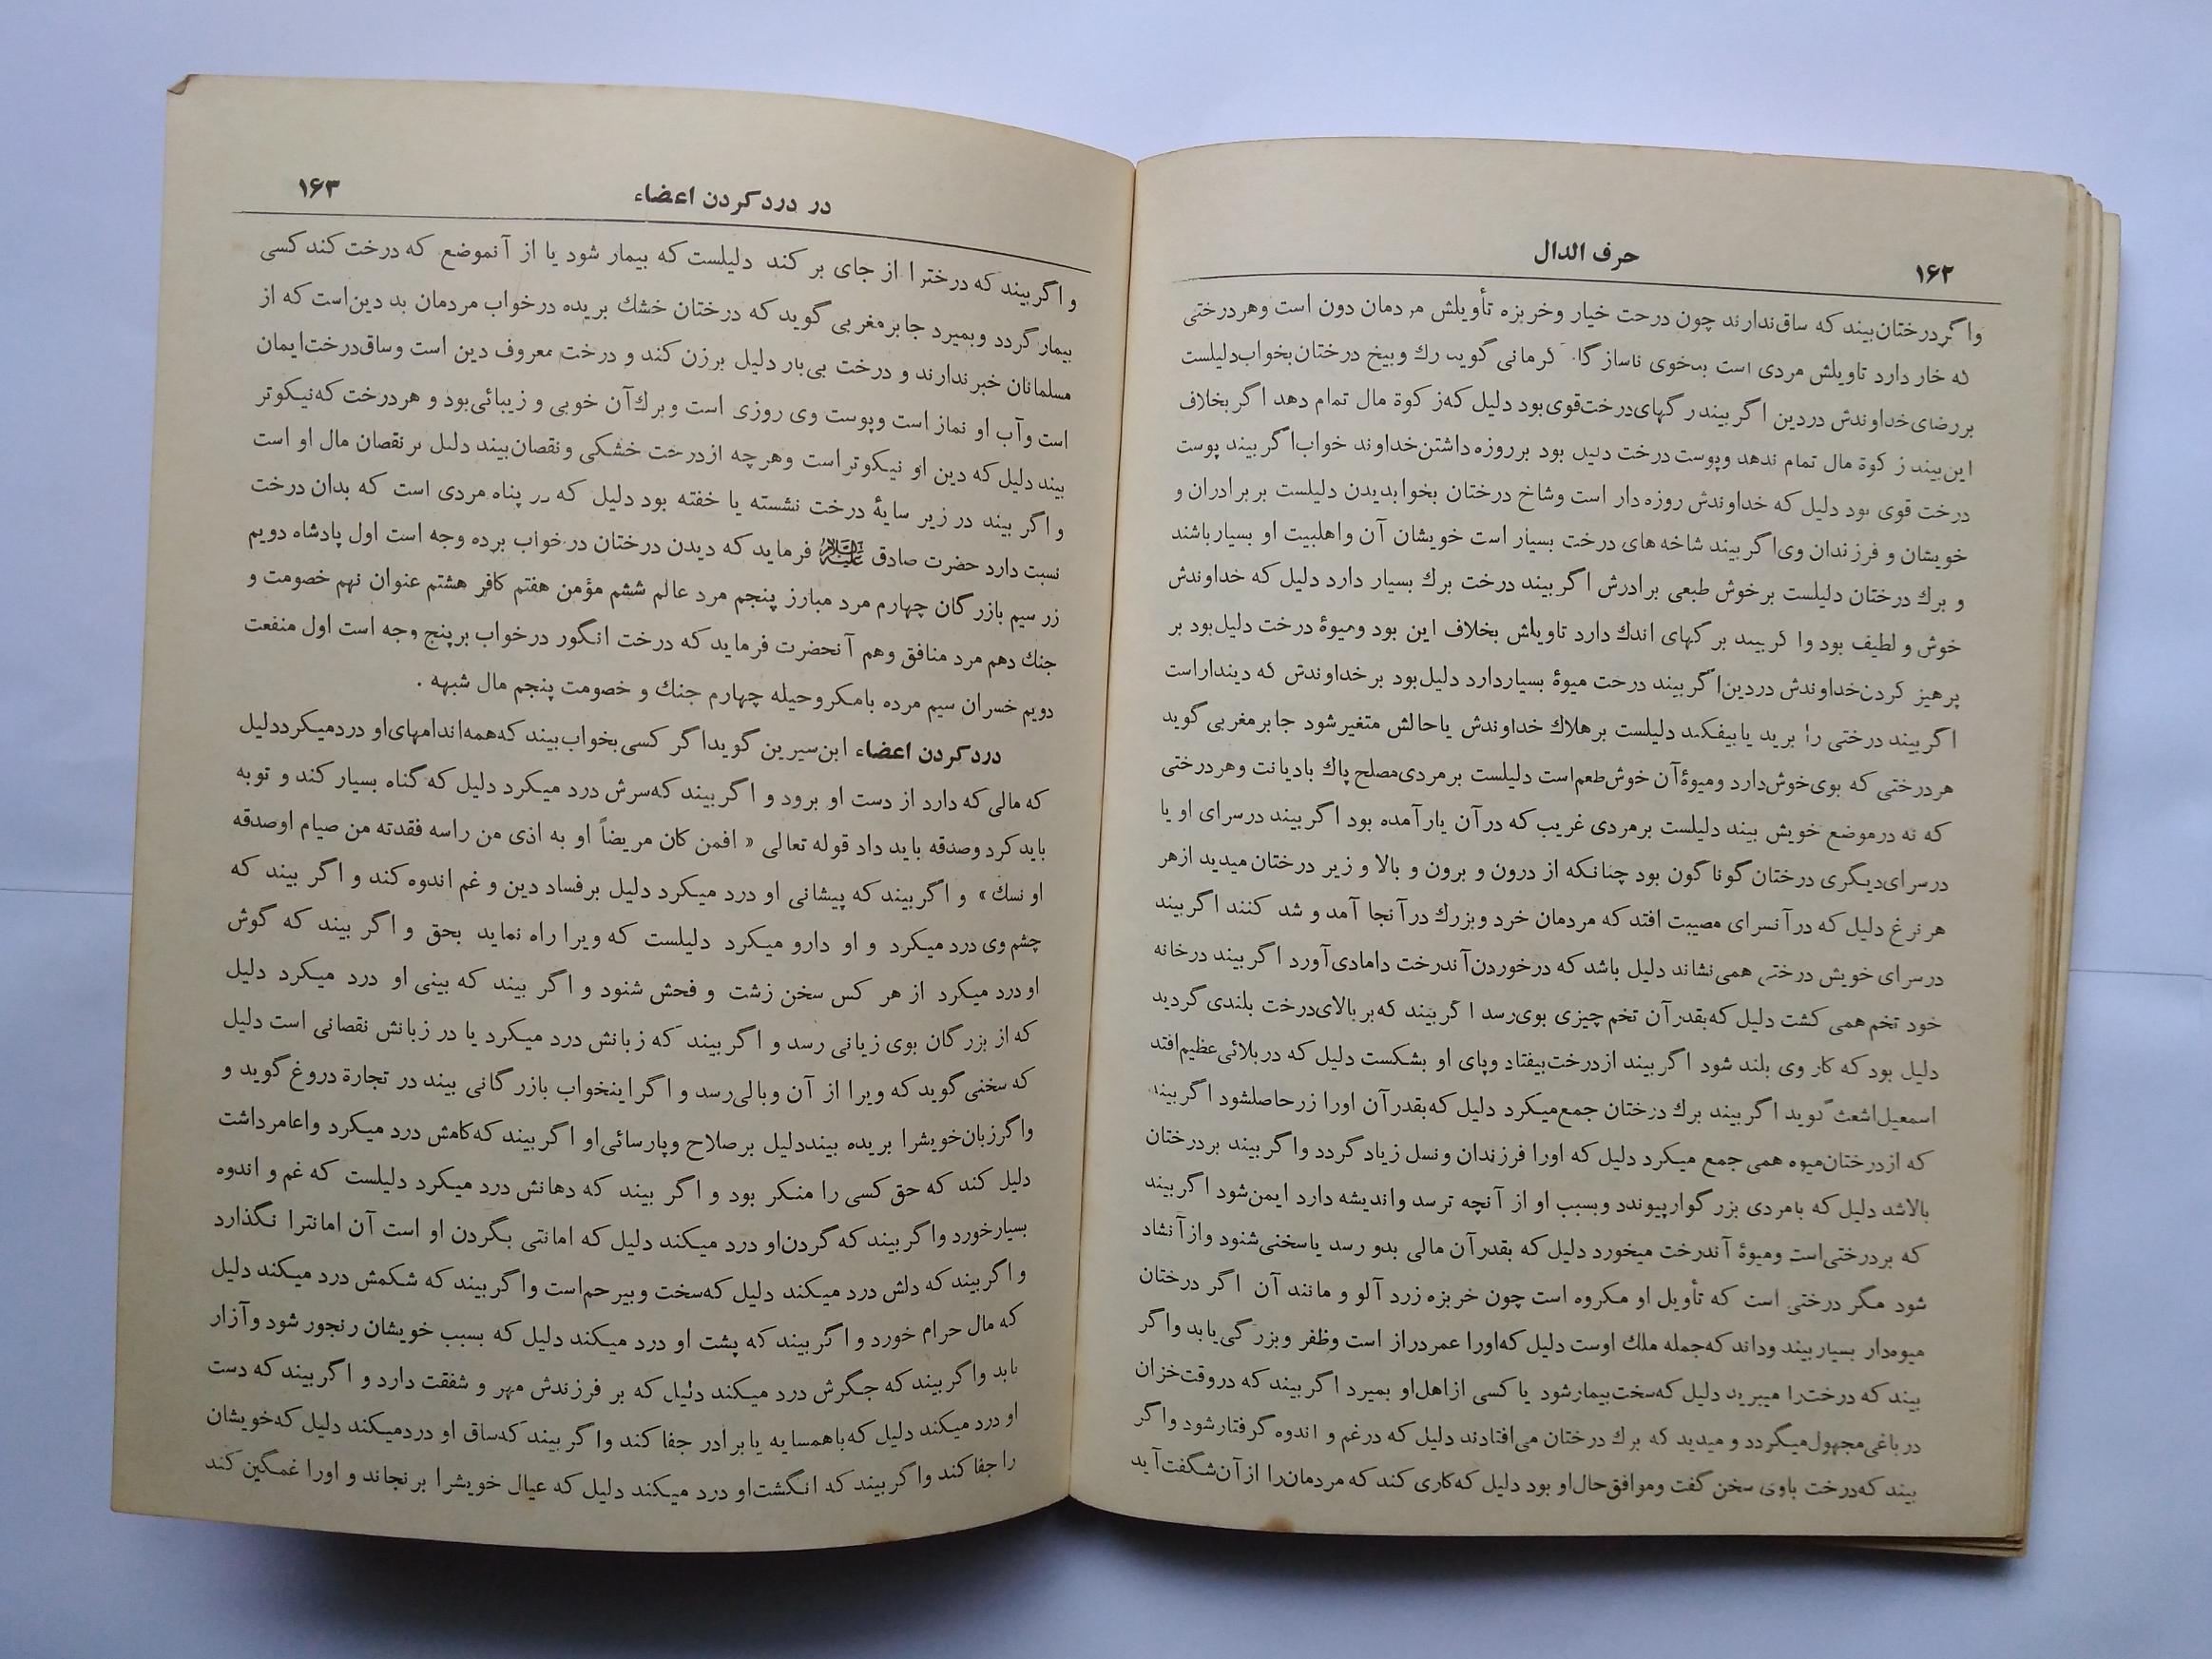 حرف الدال
۱۶۲
واگردرختان‌بیند که ساق‌ندارند چون درخت خیار وخربزه تأویلش مردمان دون است وهردرختی
که خار دارد تاویلش مردی است بدخوی ناسازگار کرمانی گوید رك وبیخ درختان‌بخواب‌دلیلست
بررضای‌خداوندش دردین اگربیند رگهای‌درخت‌قوی‌بود دلیل که‌زکوة مال تمام دهد اگربخلاف
این‌بیند زکوة مال تمام ندهد وپوست درخت دلیل بود برروزه داشتن‌خداوند خواب‌اگربیند پوست
درخت قوی بود دلیل که خداوندش روزه دار است وشاخ درختان بخوابدیدن دلیلست بربرادران و
خویشان و فرزندان وی‌اگربیند شاخه‌های درخت بسیار است خویشان آن واهلبیت او بسیارباشند
و برك درختان دلیلست برخوش طبعی برادرش اگربیند درخت برك بسیار دارد دلیل که خداوندش
خوش و لطیف بود واگربیند برگهای اندك دارد تاویلش بخلاف این بود ومیوهٔ درخت دلیل‌بود بر
پرهیز کردن‌خداوندش دردین‌اگربیند درخت میوهٔ بسیاردارد دلیل‌بود برخداوندش که دینداراست
اگربیند درختی را برید یابیفکند دلیلست برهلاك خداوندش یاحالش متغیرشود جابرمغربی گوید
هردرختی که بوی‌خوش‌دارد ومیوهٔ‌آن خوش‌طعم‌است دلیلست برمردی‌مصلح پاك بادیانت وهردرختی
که نه درموضع خویش بیند دلیلست برمردی غریب که درآن یارآمده بود اگربیند درسرای او یا
درسرای‌دیگری درختان گوناگون بود چنانکه از درون و برون و بالا و زیر درختان‌میدید ازهر
هرنرغ دلیل که درآنسرای مصیبت افتد که مردمان خرد وبزرك درآنجا آمد و شد کنند اگربیند
درسرای خویش درختی همی‌نشاند دلیل باشدکه درخوردن‌آندرخت دامادی‌آورد اگربیند درخانه
خود تخم همی کشت دلیل که‌بقدرآن تخم چیزی بوی‌رسد اگربیند که‌بربالای‌درخت بلندی گردید
دلیل بود که کار وی بلند شود اگربیند ازدرخت‌بیفتاد وپای او بشکست دلیل که دربلائی‌عظیم‌افتد
اسمعیل‌اشعث گوید اگربیند برك درختان جمع‌میکرد دلیل که‌بقدرآن اورا زرحاصلشود اگربیند
که ازدرختان‌میوه همی جمع میکرد دلیل که اورا فرزندان ونسل زیاد گردد واگربیند بردرختان
بالاشد دلیل که بامردی بزرگوارپیوندد وبسبب او از آنچه ترسد واندیشه دارد ایمن‌شود اگربیند
که بردرختی‌است ومیوهٔ آندرخت میخورد دلیل که بقدرآن مالی بدو رسد یاسخنی‌شنود وازآنشاد
شود مگر درختی است که تأویل او مکروه است چون خربزه زرد آلو و مانند آن اگر درختان
میوه‌دار بسیاربیند وداند که‌جمله ملك اوست دلیل که‌اورا عمردراز است وظفر وبزرگی‌یابد واگر
بیند که درخت‌را میبرید دلیل که‌سخت‌بیمارشود یاکسی ازاهل‌او بمیرد اگربیند که دروقت‌خزان
درباغی‌مجهول‌میگردد و میدید که برك درختان می‌افتادند دلیل که درغم و اندوه گرفتارشود واگر
بیند که‌درخت باوی سخن گفت وموافق‌حال‌او بود دلیل که‌کاری کند که مردمان‌را ازآن‌شگفت‌آید
در دردکردن اعضاء
۱۶۳
و اگربیند که درخترا از جای بر کند دلیلست که بیمار شود یا از آنموضع که درخت کند کسی
بیمارگردد وبمیرد جابرمغربی گوید که درختان خشك بریده درخواب مردمان بد دین‌است که از
مسلمانان خبرندارند و درخت بی‌بار دلیل برزن کند و درخت معروف دین است وساق‌درخت‌ایمان
است وآب او نماز است وپوست وی روزی است وبرك‌آن خوبی و زیبائی‌بود و هردرخت که‌نیکوتر
بیند دلیل که دین او نیکوتراست وهرچه ازدرخت خشکی ونقصان‌بیند دلیل برنقصان مال او است
و اگر بیند در زیر سایهٔ درخت نشسته یا خفته بود دلیل که در پناه مردی است که بدان درخت
نسبت دارد حضرت صادق علیه‌السلام فرماید که دیدن درختان درخواب برده وجه است اول پادشاه دویم
زر سیم بازرگان چهارم مرد مبارز پنجم مرد عالم ششم مؤمن هفتم کافر هشتم عنوان نهم خصومت و
جنك دهم مرد منافق وهم آنحضرت فرماید که درخت انگور درخواب برپنج وجه است اول منفعت
دویم خسران سیم مرده بامکروحیله چهارم جنك و خصومت پنجم مال شبهه .
دردکردن اعضاء ابن‌سیرین گویداگر کسی‌بخواب‌بیند که‌همه‌اندامهای‌او دردمیکرددلیل
که مالی که دارد از دست او برود و اگربیند که‌سرش درد میکرد دلیل که گناه بسیار کند و توبه
باید کرد وصدقه باید داد قوله تعالی « افمن کان مریضاً او به اذی من راسه فقدته من صیام اوصدقه
او نسك » و اگربیند که پیشانی او درد میکرد دلیل برفساد دین و غم اندوه کند و اگر بیند که
چشم وی درد میکرد و او دارو میکرد دلیلست که ویرا راه نماید بحق و اگر بیند که گوش
او درد میکرد از هر کس سخن زشت و فحش شنود و اگر بیند که بینی او درد میکرد دلیل
که از بزرگان بوی زیانی رسد و اگربیند که زبانش درد میکرد یا در زبانش نقصانی است دلیل
که سخنی گوید که ویرا از آن وبالی‌رسد و اگراینخواب بازرگانی بیند در تجارة دروغ گوید و
واگرزبان‌خویشرا بریده بینددلیل برصلاح وپارسائی‌او اگربیند که‌کامش درد میکرد واعامرداشت
دلیل کند که حق کسی را منکر بود و اگر بیند که دهانش درد میکرد دلیلست که غم و اندوه
بسیارخورد واگربیند که گردن‌او درد میکند دلیل که امانتی بگردن او است آن امانترا نگذارد
و اگربیند که دلش درد میکند دلیل که‌سخت وبیرحم‌است واگربیند که شکمش درد میکند دلیل
که مال حرام خورد و اگربیند که پشت او درد میکند دلیل که بسبب خویشان رنجور شود وآزار
یابد واگربیند که جگرش درد میکند دلیل که بر فرزندش مهر و شفقت دارد و اگربیند که دست
او درد میکند دلیل که‌باهمسایه یابرادر جفا کند واگربیند که‌ساق او دردمیکند دلیل که‌خویشان
را جفاکند واگربیند که انگشت‌او درد میکند دلیل که عیال خویشرا برنجاند و اورا غمگین کند